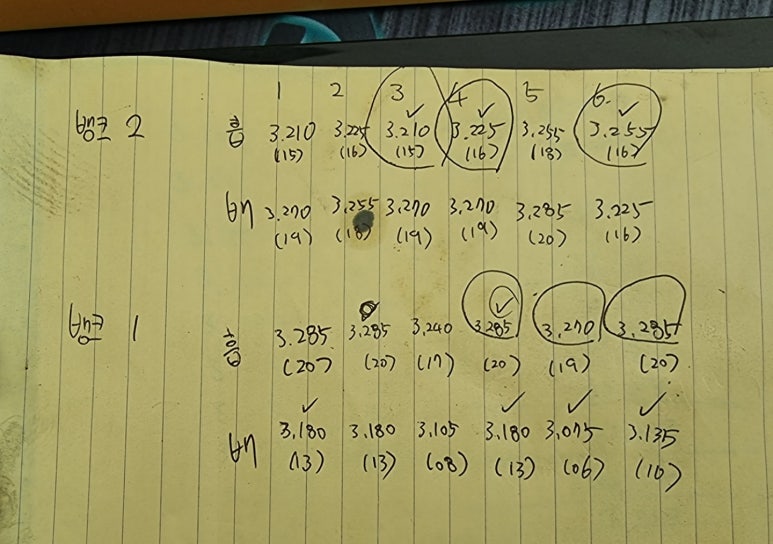 1 2 3 4 5 6
뱅크 2 흡 3.210 3.225 3.210 3.225 3.255 3.255
(15) (16) (15) (16) (18) (16)
배 3.270 3.255 3.270 3.270 3.285 3.225
(19) (18) (19) (19) (20) (16)
뱅크 1 흡 3.285 3.285 3.240 3.285 3.270 3.285
(20) (20) (17) (20) (19) (20)
배 3.180 3.180 3.105 3.180 3.075 3.135
(13) (13) (08) (13) (06) (10)